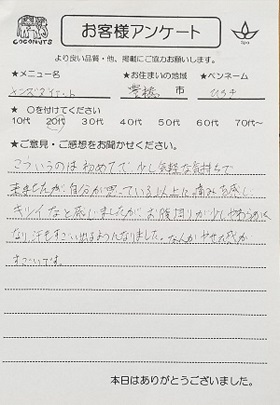 COCONUTS
お客様アンケート
Spa
より良い品質・他、掲載にご協力お願いします。
★メニュー名 ★お住まいの地域 ★ペンネーム
メンズダイエット 豊橋 市
★ 〇を付けてください
10代 20代 30代 40代 50代 60代 70代〜
★ご意見・ご感想をお聞かせください。
こういうのは初めてで、少し気軽な気持ちで
来ましたが、自分が思っている以上に痛みを感じ、
キツイなと感じましたが、お腹周りが少しやわらかく
なり、汗もすごい出るようになりました。なんかやせた感が
すごいです。
本日はありがとうございました。